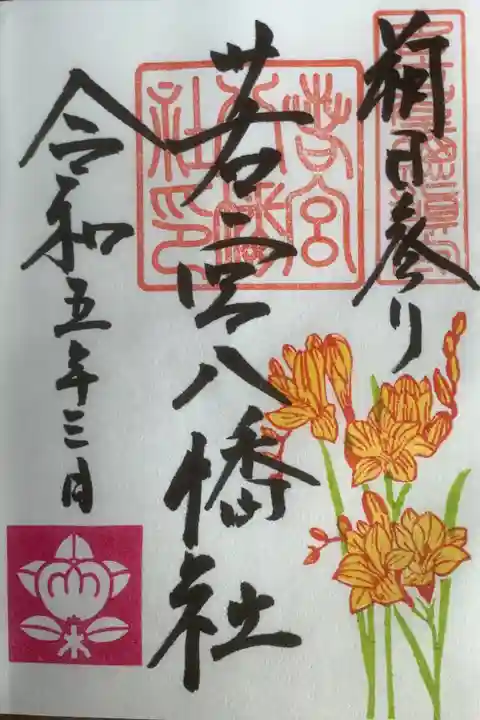 朔日参り
若宮八幡社
令和五年三月
若宮
八幡
社印